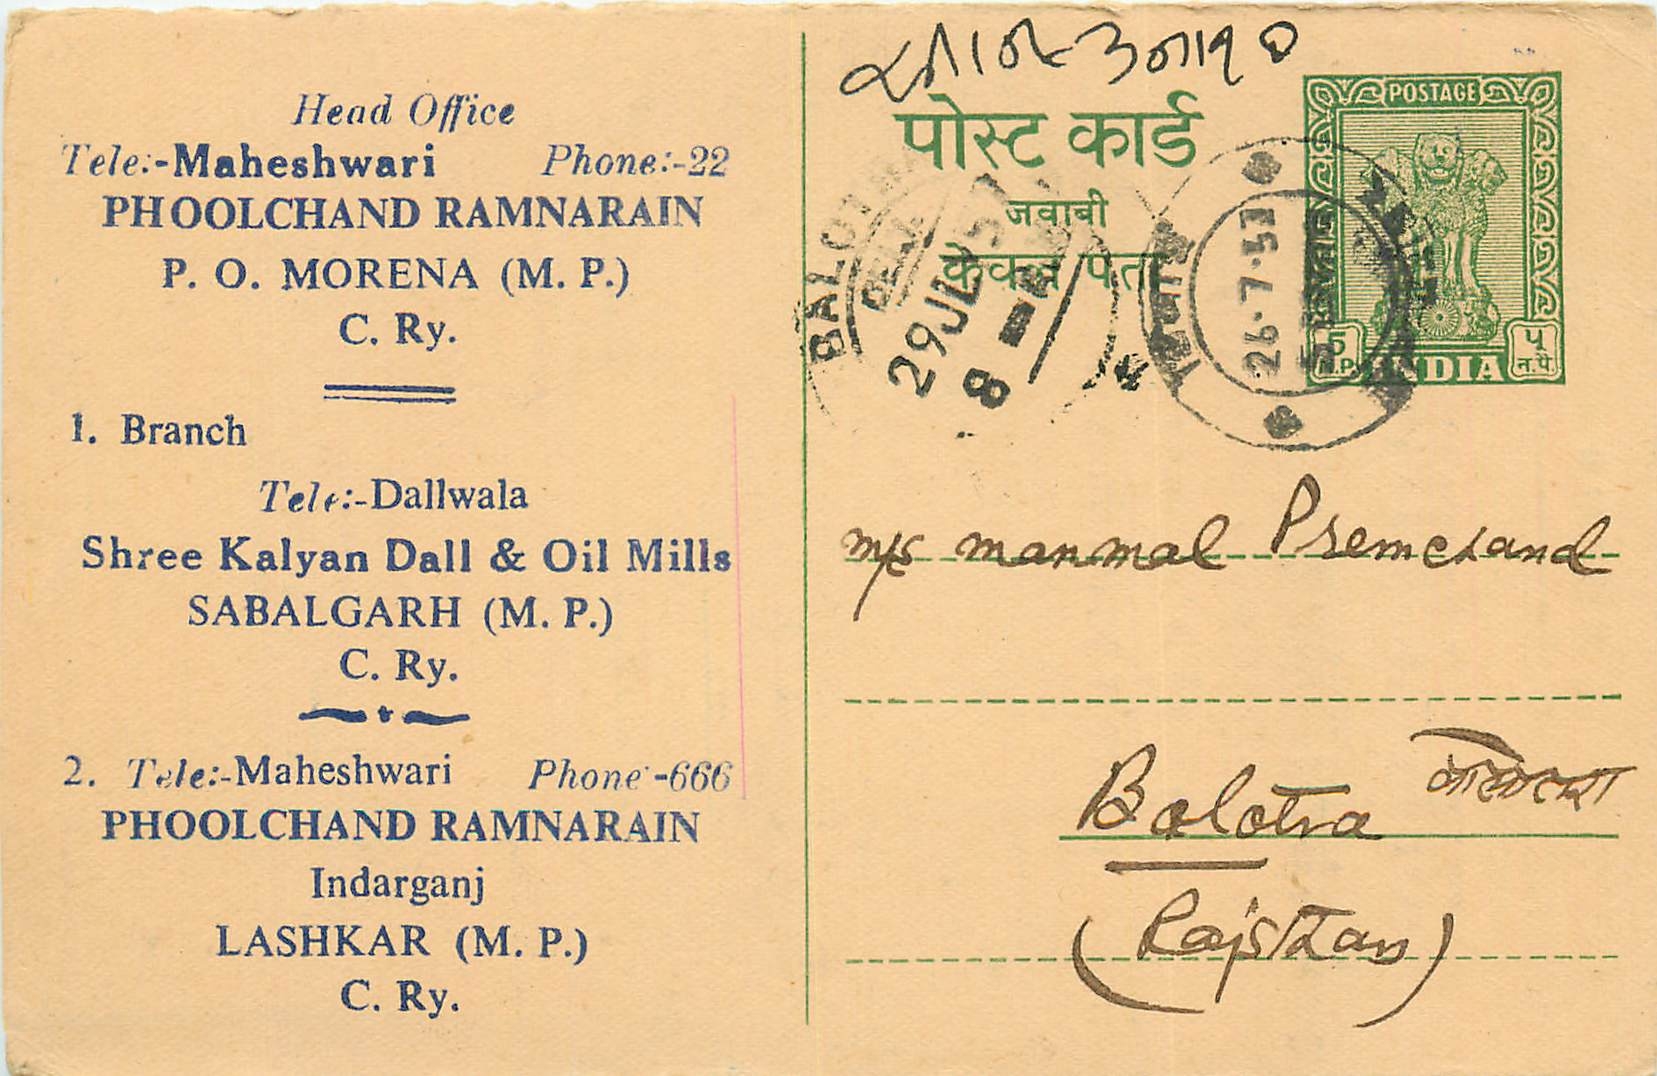 Head Office
Tele:-Maheshwari Phone:-22
PHOOLCHAND RAMNARAIN
P. O. MORENA (M. P.)
C. Ry.
1. Branch
Tele:-Dallwala
Shree Kalyan Dall & Oil Mills
SABALGARH (M. P.)
C. Ry.
2. Tele:-Maheshwari Phone-666
PHOOLCHAND RAMNARAIN
Indarganj
LASHKAR (M. P.)
C. Ry.
पोस्ट कार्ड
जवाबी
केवल पता
POSTAGE
5 N.P. INDIA ५ न.पै.
BALOTRA
DELY.
29 JUL 57
8
26.7.57
M/s Manmal Premchand
Balotra
(Rajsthan)